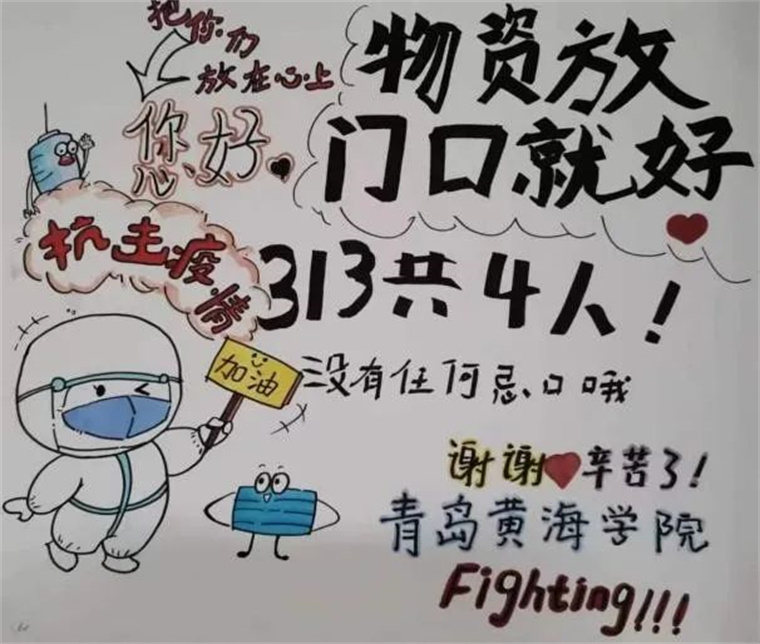 把你们
放在心上
您好
物资放
门口就好
抗击疫情
313共4人!
加油
没有任何忌口哦
谢谢辛苦了!
青岛黄海学院
Fighting!!!